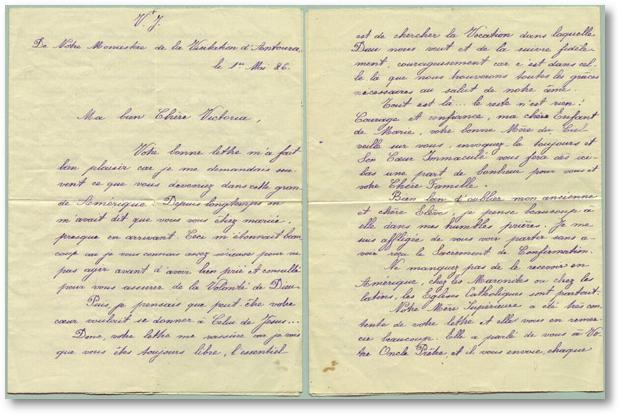 V. + J.
De Notre Monastère de la Visitation d'Antoura,
le 1er Mai 86.
Ma bien Chère Victoria,
Votre bonne lettre m'a fait
bien plaisir car je me demandais sou-
vent ce que vous deveniez dans cette gran-
de Amérique. Depuis longtemps on
m'avait dit que vous vous étiez mariée,
presque en arrivant. Ceci m'étonnait beau
coup car je vous connais assez sérieuse pour ne
pas agir avant d'avoir bien prié et consulté
pour vous assurer de la Volonté de Dieu.
Puis je pensais que peut être votre
cœur voulait se donner à Celui de Jésus...
Donc, votre lettre me rassure car je vois
que vous êtes toujours libre, l'essentiel
est de chercher la Vocation dans laquelle
Dieu nous veut et de la suivre fidèle-
ment, courageusement car c'est dans cel-
le là que nous trouverons toutes les grâces
nécessaires au salut de notre âme.
Tout est là... le reste n'est rien!
Courage et confiance, ma chère Enfant
de Marie, votre bonne Mère du Ciel
veille sur vous, invoquez-la toujours et
Son Cœur Immaculé vous fera dès ici-
bas une part de bonheur pour vous et
votre Chère Famille.
Bien loin d'oublier mon ancienne
et chère Elève, je pense beaucoup à
elle dans mes humbles prières. Je me
suis affligée de vous voir partir sans a-
voir reçu le Sacrement de Confirmation.
Ne manquez pas de le recevoir en
Amérique, chez les Maronites ou chez les
latins, les Eglises Catholiques sont partout.
Notre Mère Supérieure a été très con-
tente de votre lettre et elle vous en remer-
cie beaucoup. Elle a parlé de vous à Vo-
tre Oncle Prêtre et il vous envoie, chaque